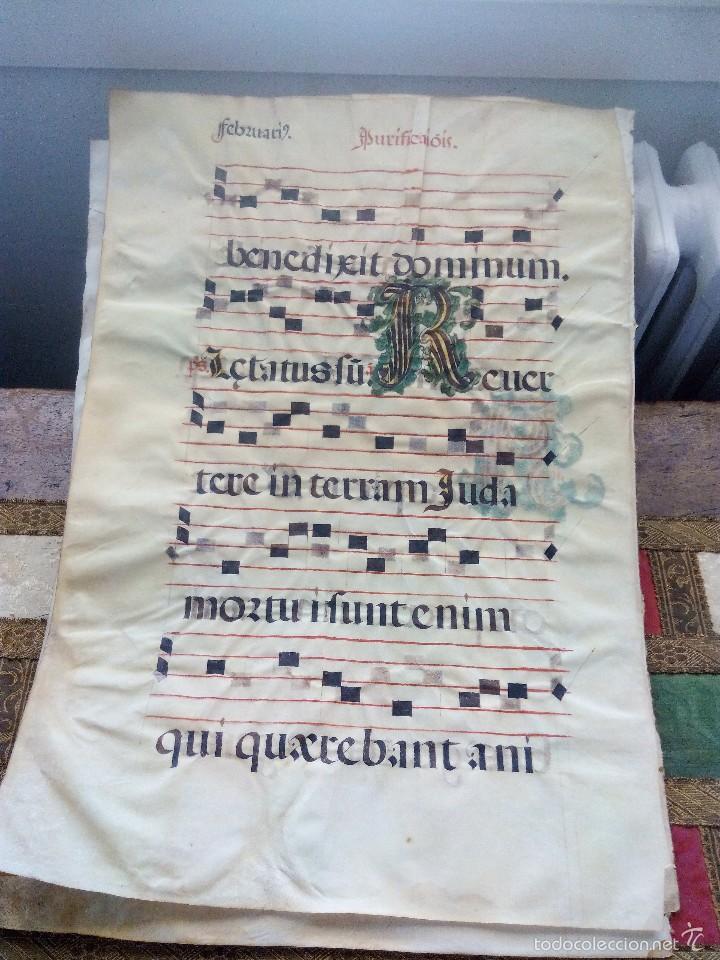 Februari⁹. Purificaiõis.
benedixit dominum.
ps Lętatus sũ. Reuer
tere in terram Juda
mortui sunt enim
qui quærebant ani
todocoleccion.net